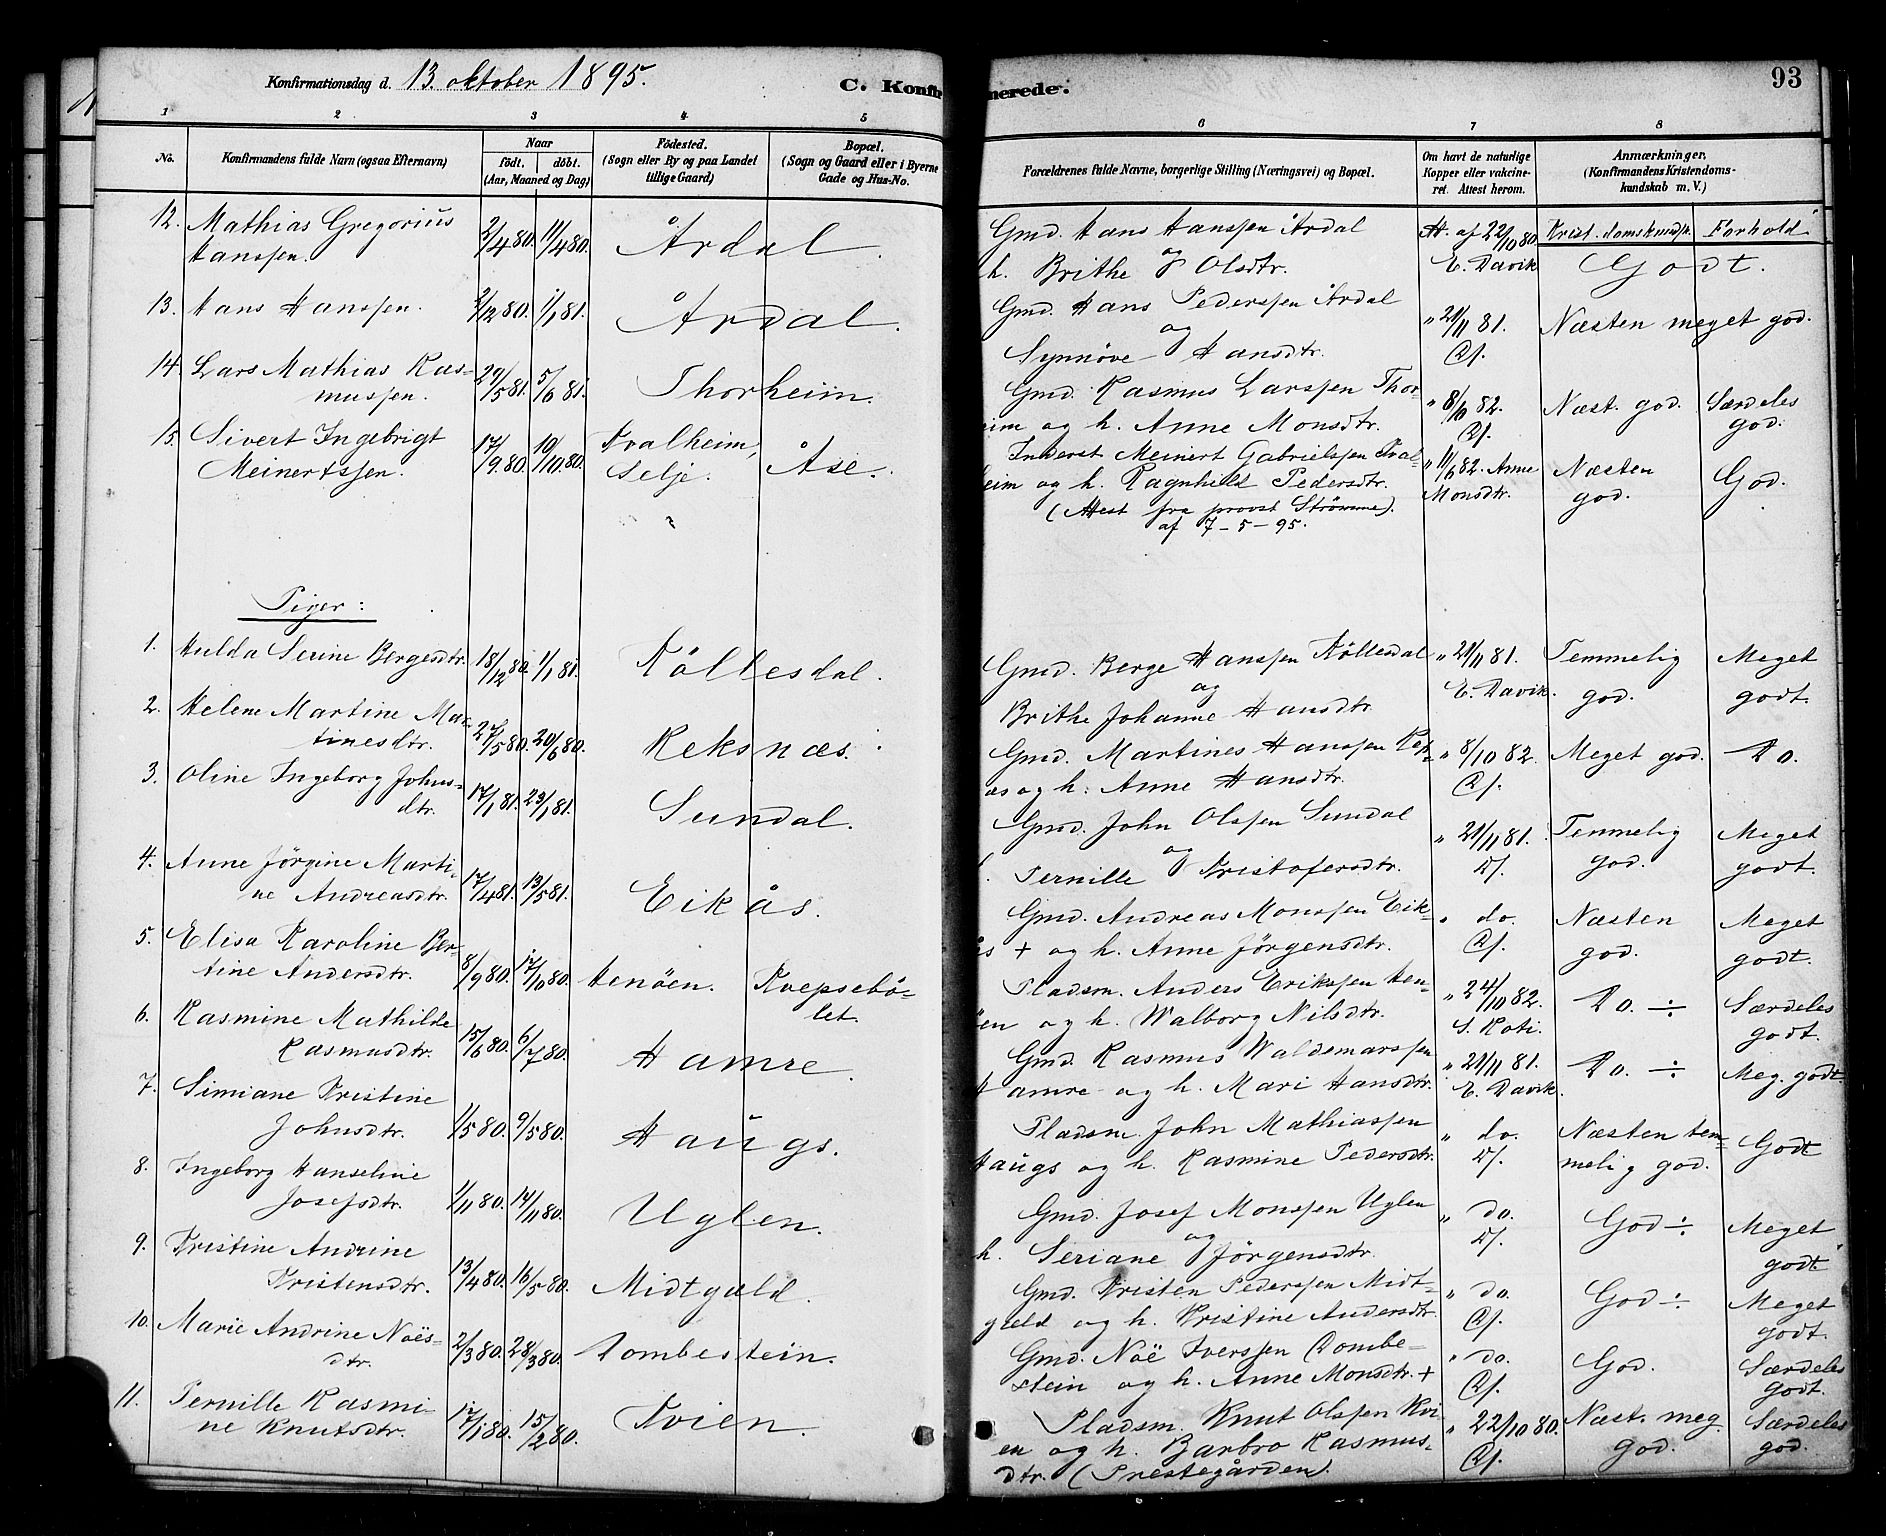 Konfirmationsdag d. 13. oktober 1895.
C. Konfir
merede.
93
1 2 3 4 5 6 7 8
No.
Konfirmandens fulde Navn (ogsaa Efternavn)
Naar
födt. döbt.
(Aar, Maaned og Dag)
Födested.
(Sogn eller By og paa Landet
tillige Gaard)
Bopæl.
(Sogn og Gaard eller i Byerne
Gade og Hus-No.
Forældrenes fulde Navne, borgerlige Stilling (Næringsvei) og Bopæl.
Om havt de naturlige
Kopper eller vakcine-
ret. Attest herom.
Anmærkninger.
(Konfirmandens Kristendoms-
kundskab m. V.)
Krist.domskundsk. Forhold
12. Mathias Gregorius
Hanssen. 2/4 80. 11/4 80. Årdal.
Gmd. Hans Hanssen Årdal
og
h. Brithe Olsdtr.
At. af 22/10 80.
E. Davik
Godt.
13. Hans Hanssen. 2/12 80. 1/1 81. Årdal.
Gmd. Hans Pederssen Årdal
og
Synnöve Hansdtr.
" 21/11 81.
Næsten meget god.
14. Lars Mathias Ras-
mussen. 29/5 81. 5/6 81. Thorheim.
Gmd. Rasmus Larssen Thor-
eim og h. Anne Monsdtr.
" 8/10 82.
Næst. god. Særdeles
god.
15. Sivert Ingebrigt
Meinertssen. 17/9 80. 10/10 80. Kvalheim,
Selje. Åse.
Inderst Meinert Gabrielssen Kval-
eim og h. Ragnhild Pedersdtr.
(Attest fra provst Strömme).
af 7-5-95.
" 11/6 82. Anne
Monsdtr.
Næsten
god. God.
Piger:
1. Hulda Serine Bergesdtr. 18/12 80. 1/1 81. Költesdal.
Gmd. Berge Hanssen Költesdal
og
Brithe Johanne Hansdtr.
" 21/11 81.
E. Davik.
Temmelig
god. Meget
godt.
2. Helene Martine Mar-
tinesdtr. 27/5 80. 20/6 80. Reksnæs.
Gmd. Martines Hanssen Reks-
æs og h. Anne Hansdtr.
" 8/10 82.
Meget god. Do.
3. Oline Ingeborg Johns-
dtr. 17/1 81. 23/1 81. Sundal.
Gmd. John Olssen Sundal
og
Pernille Kristofersdtr.
" 21/11 81.
Temmelig
god. Meget
godt.
4. Anne Jörgine Marti-
ne Andreasdtr. 17/4 81. 13/5 81. Eikås.
Gmd. Andreas Monssen Eik-
ås + og h. Anne Jörgensdtr.
" do.
Næsten
god. Meget
godt.
5. Elisa Karoline Ber-
tine Andersdtr. 8/9 80. 17/10 80. Henöen. Kvepsebö-
let.
Pladsm. Anders Erikssen Hen-
öen og h. Walborg Nilsdtr.
" 24/10 82.
S. Koti.
Do. ÷ Særdeles
godt.
6. Rasmine Mathilde
Rasmusdtr. 15/6 80. 6/7 80. Hamre.
Gmd. Rasmus Waldemarssen
Hamre og h. Mari Hansdtr.
" 21/11 81.
E. Davik.
Do. ÷ Meg. godt.
7. Simiane Kristine
Johnsdtr. 1/5 80. 9/5 80. Haugs.
Pladsm. John Mathiassen
Haugs og h. Rasmine Pedersdtr.
" do.
Næsten tem-
melig god. Godt
8. Ingeborg Hanseline
Josefsdtr. 1/11 80. 14/11 80. Uglen.
Gmd. Josef Monssen Uglen
og
h. Seriane Jörgensdtr.
" do.
God ÷ Meget
godt
9. Kristine Andrine
Kristensdtr. 13/4 80. 16/5 80. Midtgæld.
Gmd. Kristen Pederssen Midt-
gæld og h. Kristine Andersdtr.
" do.
God ÷ Meget
godt.
10. Marie Andrine Noës-
dtr. 2/3 80. 28/3 80. Dombestein.
Gmd. Noë Iverssen Dombe-
stein og h. Anne Monsdtr. +
" do.
God. Særdeles
godt.
11. Pernille Rasmi-
ne Knutsdtr. 17/1 80. 15/2 80. Kvien.
Pladsm. Knut Olssen Kvi-
en og h. Barbro Rasmus-
dtr. (Prestegården).
" 22/10 80.
Næst. meg.
god. Særdeles
god.